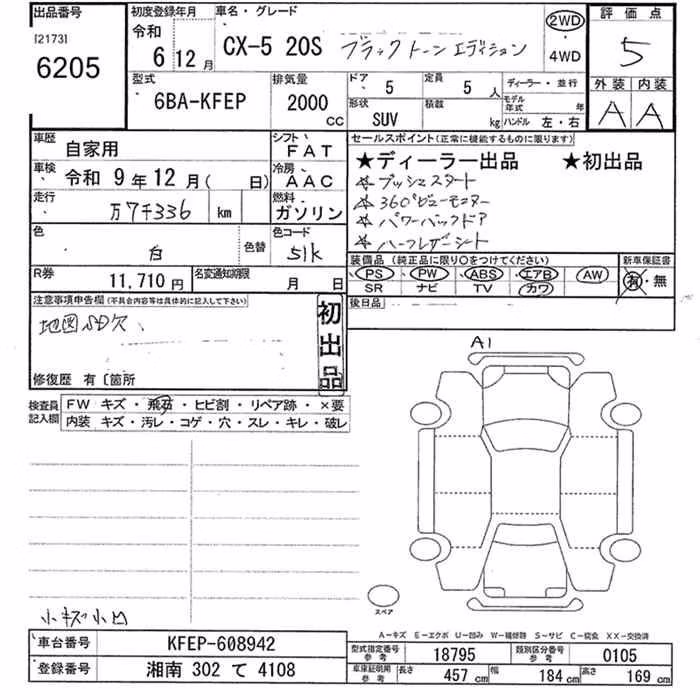 出品番号
[2173]
6205
初度登録年月
令和
6 12月
車名・グレード
CX-5 20S ブラックトーンエディション
2WD
4WD
評価点
5
外装 内装
A A
型式
6BA-KFEP
排気量
2000
CC
ドア
5
定員
5 人
形状
SUV
積載
kg
ディーラー・並行
モデル年式 年
ハンドル 左・右
車歴
自家用
シフト
FAT
車検
令和 9年12月( 日)
冷房
AAC
走行
万7千336 km
燃料
ガソリン
色
白
色替
色コード
51k
R券
11,710円
名変通知期限
月 日
セールスポイント(正常に機能するものに限ります)
★ディーラー出品 ★初出品
☆プッシュスタート
☆360°ビューモニター
☆パワーバックドア
☆ハーフレザーシート
装備品(純正品に限り○をつけてください)
PS PW ABS エアB AW
SR ナビ TV カワ
新車保証書
有・無
後日品
注意事項申告欄(不具合内容等は具体的に記入して下さい)
地図SD欠
初出品
修復歴 有〔箇所
検査員記入欄
FW キズ・飛石・ヒビ割・リペア跡・×要
内装 キズ・汚レ・コゲ・穴・スレ・キレ・破レ
A1
スペア
小キズ小凹
A−キズ E−エクボ U−凹み W−補修跡 S−サビ C−腐食 XX−交換済
車台番号
KFEP-608942
登録番号
湘南 302 て 4108
型式指定番号
参考
18795
類別区分番号
参考
0105
車庫証明用
参考
長さ 457 cm 幅 184 cm 高さ 169 cm